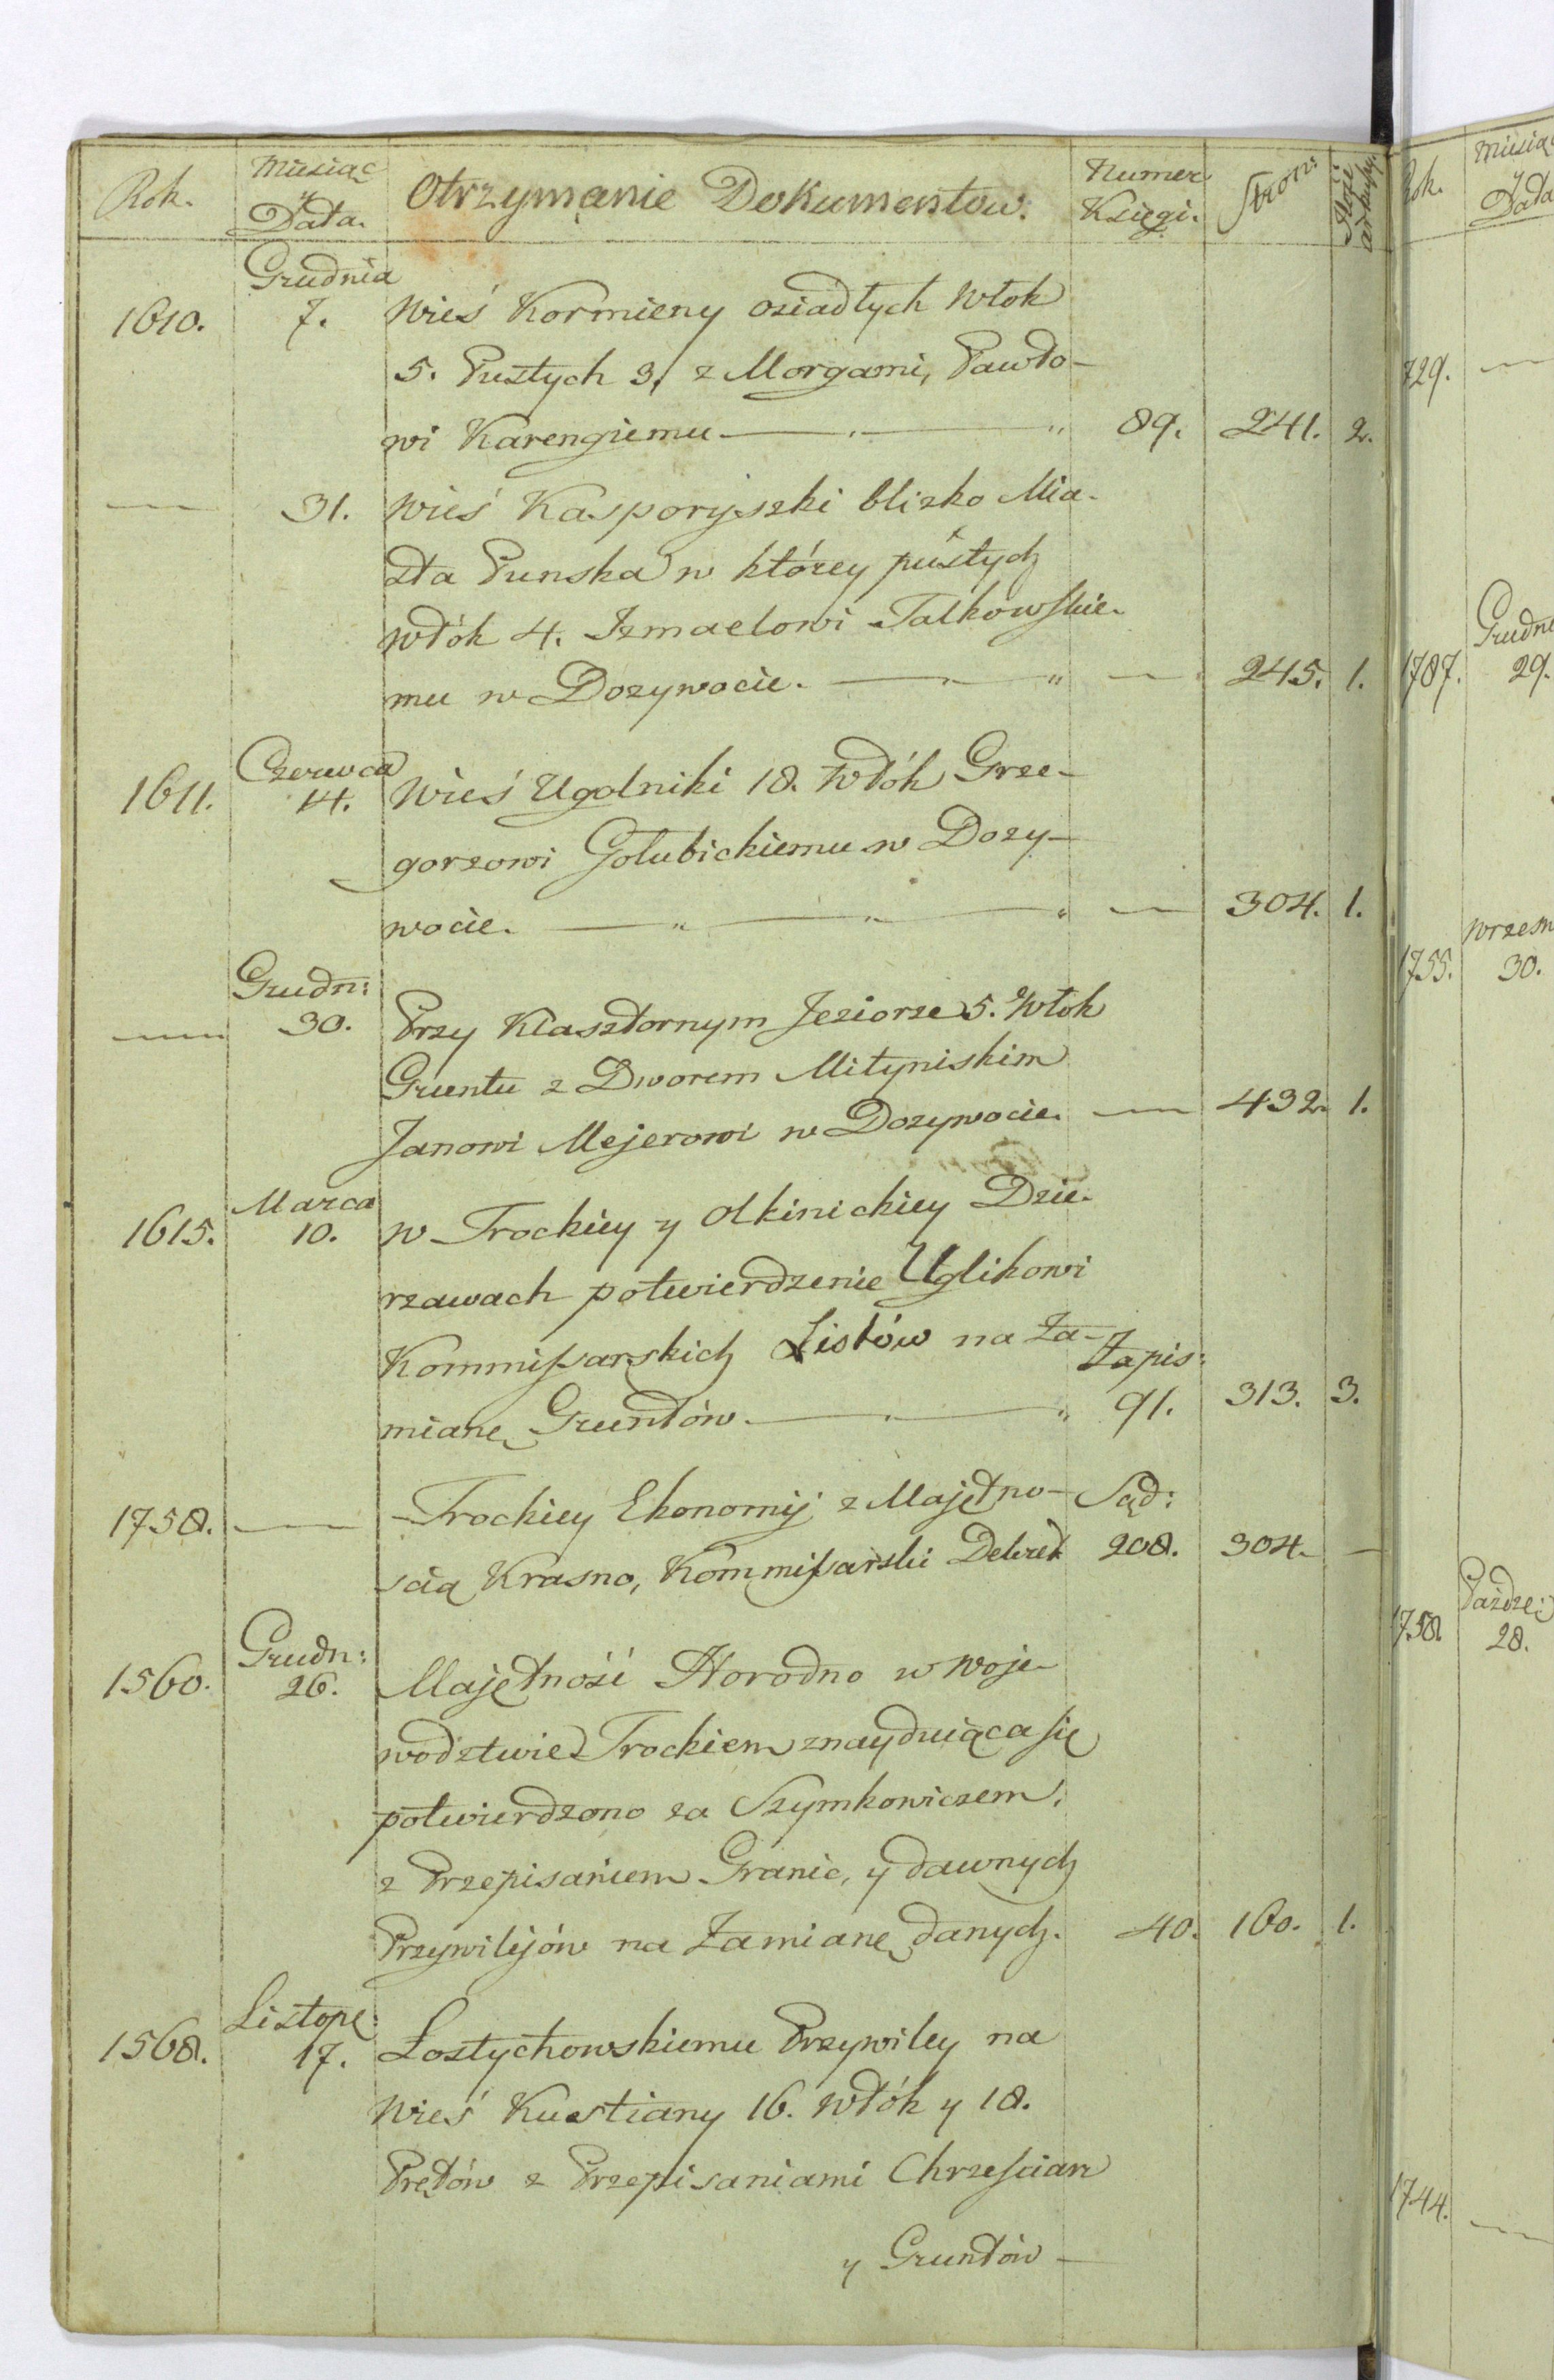 Rok. Miesiąc y Data. Otrzymanie Dokumentow. Numer Księgi. Stron: Ilość arkuszy.
Grudnia
1610. 7. Wieś Kormieny osiadłych Włok
5. Pustych 3, z Morgami, Pawło-
wi Karengiemu 89. 241. 2.
31. Wieś Kasporyszki blizko Mia-
sta Punska w którey pustych
włók 4. Izmaelowi Talkowskie-
mu w Dozywocie. 245. 1.
Czerwca
1611. 14. Wieś Ugolniki 18. Włók Grze-
gorzowi Gołubickiemu w Dozy-
wocie. 304. 1.
Grudn:
30. Przy Klasztornym Jeziorze 5. Włok
Gruntu z Dworem Mityniskim
Janowi Mejerowi w Dozywocie. 432. 1.
Marca
1615. 10. w Trockiey y Olkinickiey Dzie-
rzawach potwierdzenie Uglikowi
Kommissarskich Listów na Za- Zapis:
mianę Gruntów. 91. 313. 3.
1758. Trockiey Ekonomij z Majętno- Sąd:
scią Krasno, Kommissarski Dekret 208. 304.
Grudn:
1560. 26. Majętność Horodno w Woje-
wodztwie Trockiem znayduiąca się
potwierdzono za Szymkowiczem,
z Przepisaniem Granic, y dawnych
Przywilejów na Zamianę danych. 40. 160. 1.
Listope:
1568. 17. Łostychowskiemu Przywiley na
Wieś Kustiany 16. Włók y 18.
Prętów z Przepisaniami Chrzescian
y Gruntów
Rok. Miesiąc y Data
729.
Grudn
1787. 29.
Wrzesn
1755. 30.
Paździ:
1758 28.
1744.